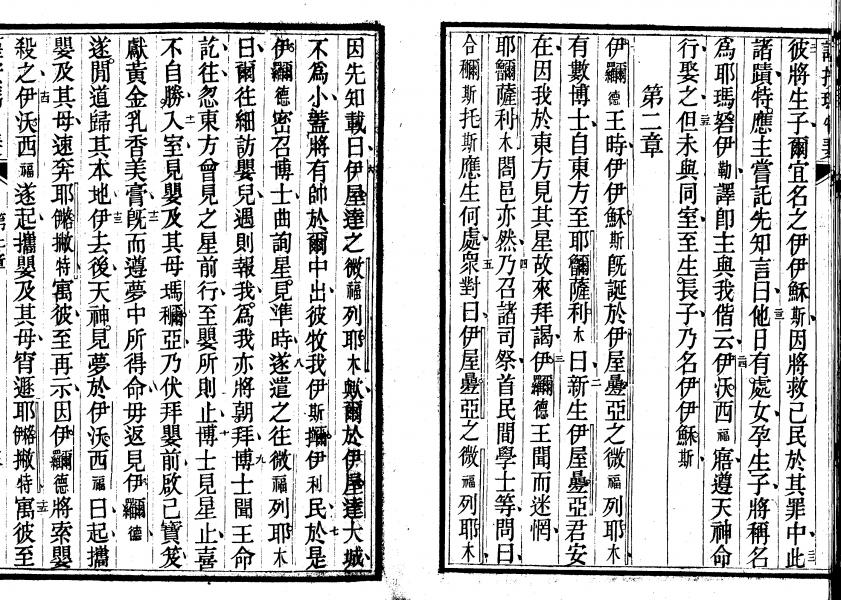 彼將生子爾宜名之伊伊穌斯因將救己民於其罪中此
諸蹟特應主嘗託先知言曰他日有處女孕生子將稱名
為耶瑪努伊勒譯卽主與我偕云伊沃西福寤遵天神命
行娶之但未與同室至生長子乃名伊伊穌斯
第二章
王時伊伊穌斯旣誕於伊屋疊亞之微福列耶木
有數博士自東方至耶薩利木曰新生伊屋疊亞君安
在因我於東方見其星故來拜謁王聞而迷惘
耶薩利木闔邑亦然乃召諸司祭首民間學士等問曰
合斯托斯應生何處衆對曰伊屋疊亞之微福列耶木
因先知載曰伊屋達之微福列耶木歟爾於伊屋達大城
不為小蓋將有帥於爾中出彼牧我伊斯伊利民於是
密召博士曲詢星見準時遂遣之往微福列耶木
曰爾往細訪嬰兒遇則報我為我亦將朝拜博士聞王命
訖往忽東方曾見之星前行至嬰所則止博士見星止喜
不自勝入室見嬰及其母瑪亞乃伏拜嬰前啟己寶笈
獻黃金乳香美膏旣而遵夢中所得命毋返見伊
遂閒道歸其本地伊去後天神見夢於伊沃西福曰起攜
嬰及其母速奔耶特寓彼至再示因將索嬰
殺之伊沃西福遂起攜嬰及其母宵遯耶特寓彼至